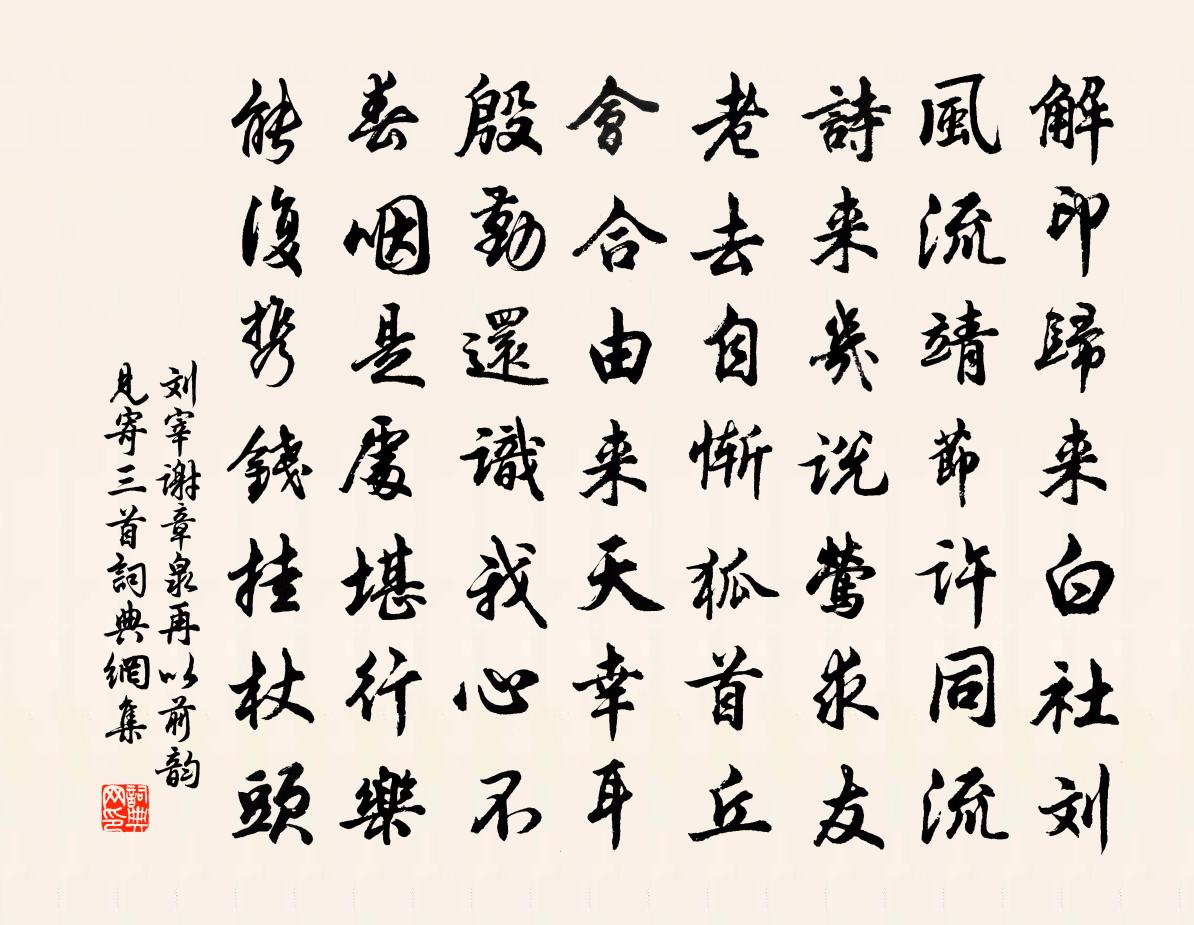 解印歸来白社刘
風流靖節許同流
詩来幾説鶯求友
老去自惭狐首丘
會合由来天幸耳
殷勤還識我心不
春咽是處堪行樂
能復携錢挂杖頭
刘宰谢章泉再以前韵
見寄三首詞典網集
詞典网印